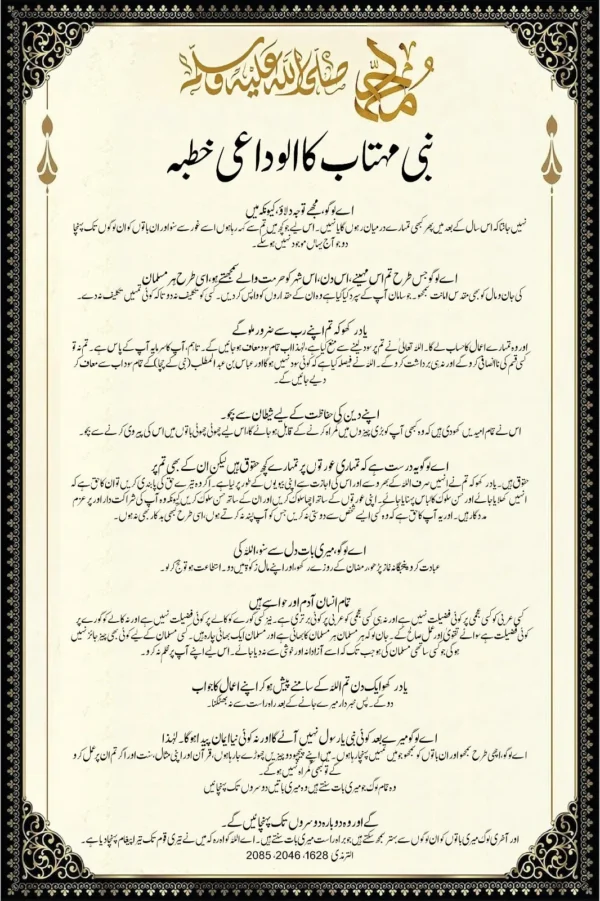 محمد صلى الله عليه وسلم
نبی مہتاب کا الوداعی خطبہ
اے لوگو، مجھے توجہ دلاؤ، کیونکہ میں
نہیں جانتا کہ اس سال کے بعد میں پھر کبھی تمہارے درمیان رہوں گا یا نہیں۔ اس لیے جو کچھ میں تم سے کہہ رہا ہوں اسے غور سے سنو اور ان باتوں کو ان لوگوں تک پہنچا
دو جو آج یہاں موجود نہیں ہو سکے۔
اے لوگو جس طرح تم اس مہینے، اس دن، اس شہر کو حرمت والے سمجھتے ہو، اسی طرح ہر مسلمان
کی جان و مال کو بھی مقدس امانت سمجھو۔ جو سامان آپ کے سپرد کیا گیا ہے وہ ان کے حقداروں کو واپس کر دیں۔ کسی کو تکلیف نہ دو تاکہ کوئی تمہیں تکلیف نہ دے۔
یاد رکھو کہ تم اپنے رب سے ضرور ملو گے
اور وہ تمہارے اعمال کا حساب لے گا۔ اللہ تعالیٰ نے تم پر سود لینے سے منع کیا ہے، لہٰذا اب تمام سود معاف ہو جائیں گے۔ تاہم، آپ کا سرمایہ آپ کے پاس ہے۔ تم نہ تو
کسی قسم کی ناانصافی کرو گے اور نہ ہی برداشت کرو گے۔ اللہ نے فیصلہ کیا ہے کہ کوئی سود نہیں ہو گا اور عباس بن عبد المطلب (نبی کے چچا) کے تمام سود اب سے معاف کر
دیے جائیں گے۔
اپنے دین کی حفاظت کے لیے شیطان سے بچو۔
اس نے تمام امیدیں کھو دی ہیں کہ وہ کبھی آپ کو بڑی چیزوں میں گمراہ کرنے کے قابل ہو جائے گا، اس لیے چھوٹی چھوٹی باتوں میں اس کی پیروی کرنے سے بچو۔
اے لوگو یہ درست ہے کہ تمہاری عورتوں پر تمہارے کچھ حقوق ہیں لیکن ان کے بھی تم پر
حقوق ہیں۔ یاد رکھو کہ تم نے انہیں صرف اللہ کے بھروسے اور اس کی اجازت سے اپنی بیویوں کے طور پر لیا ہے۔ اگر وہ تیرے حق کی پابندی کریں تو ان کا حق ہے کہ
انہیں کھلایا جائے اور حسن سلوک کا لباس پہنایا جائے۔ اپنی عورتوں کے ساتھ اچھا سلوک کریں اور ان کے ساتھ حسن سلوک کریں کیونکہ وہ آپ کی شراکت دار اور پر عزم
مددگار ہیں۔ اور یہ آپ کا حق ہے کہ وہ کسی ایسے شخص سے دوستی نہ کریں جس کو آپ پسند نہ کرتے ہوں، اسی طرح کبھی بدکار بھی نہ ہوں۔
اے لوگو، میری بات دل سے سنو، اللہ کی
عبادت کرو، پنجگانہ نماز پڑھو، رمضان کے روزے رکھو، اور اپنے مال زکوٰۃ میں دو۔ استطاعت ہو تو حج کر لو۔
تمام انسان آدم اور حوا سے ہیں
کسی عربی کو کسی عجمی پر کوئی فضیلت نہیں ہے اور نہ ہی کسی عجمی کو عربی پر کوئی برتری ہے۔ نیز کسی گورے کو کالے پر کوئی فضیلت نہیں ہے اور نہ کالے کو گورے پر
کوئی فضیلت ہے سوائے تقویٰ اور عمل صالح کے۔ جان لو کہ ہر مسلمان ہر مسلمان کا بھائی ہے اور مسلمان ایک بھائی چارہ ہیں۔ کسی مسلمان کے لیے کوئی بھی چیز جائز نہیں
ہو گی جو کسی ساتھی مسلمان کی ہو جب تک کہ اسے آزادانہ اور خوشی سے نہ دیا جائے۔ اس لیے اپنے آپ پر ظلم نہ کرو۔
یاد رکھو ایک دن تم اللہ کے سامنے پیش ہو کر اپنے اعمال کا جواب
دو گے۔ پس خبردار میرے جانے کے بعد راہ راست سے نہ بھٹکنا۔
اے لوگو میرے بعد کوئی نبی یا رسول نہیں آئے گا اور نہ کوئی نیا ایمان پیدا ہو گا۔ لہٰذا
اے لوگو، اچھی طرح سمجھو اور ان باتوں کو سمجھو جو میں تمہیں پہنچا رہا ہوں۔ میں اپنے پیچھے دو چیزیں چھوڑے جا رہا ہوں، قرآن اور اپنی مثال، سنت اور اگر تم ان پر عمل کرو
گے تو کبھی گمراہ نہیں ہو گے۔
وہ تمام لوگ جو میری بات سنتے ہیں وہ میری باتیں دوسروں تک پہنچائیں
گے اور وہ دوبارہ دوسروں تک پہنچائیں گے۔
اور آخری لوگ میری باتوں کو ان لوگوں سے بہتر سمجھ سکتے ہیں جو براہ راست میری بات سنتے ہیں۔ اے اللہ گواہ رہ کہ میں نے تیری قوم تک تیرا پیغام پہنچا دیا ہے۔
الترمذی 1628، 2046، 2085